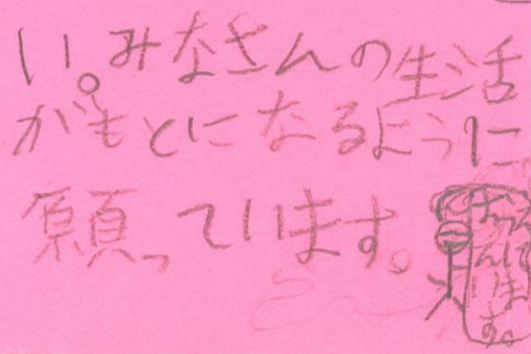 い。みなさんの生活
がもとになるように
願っています。